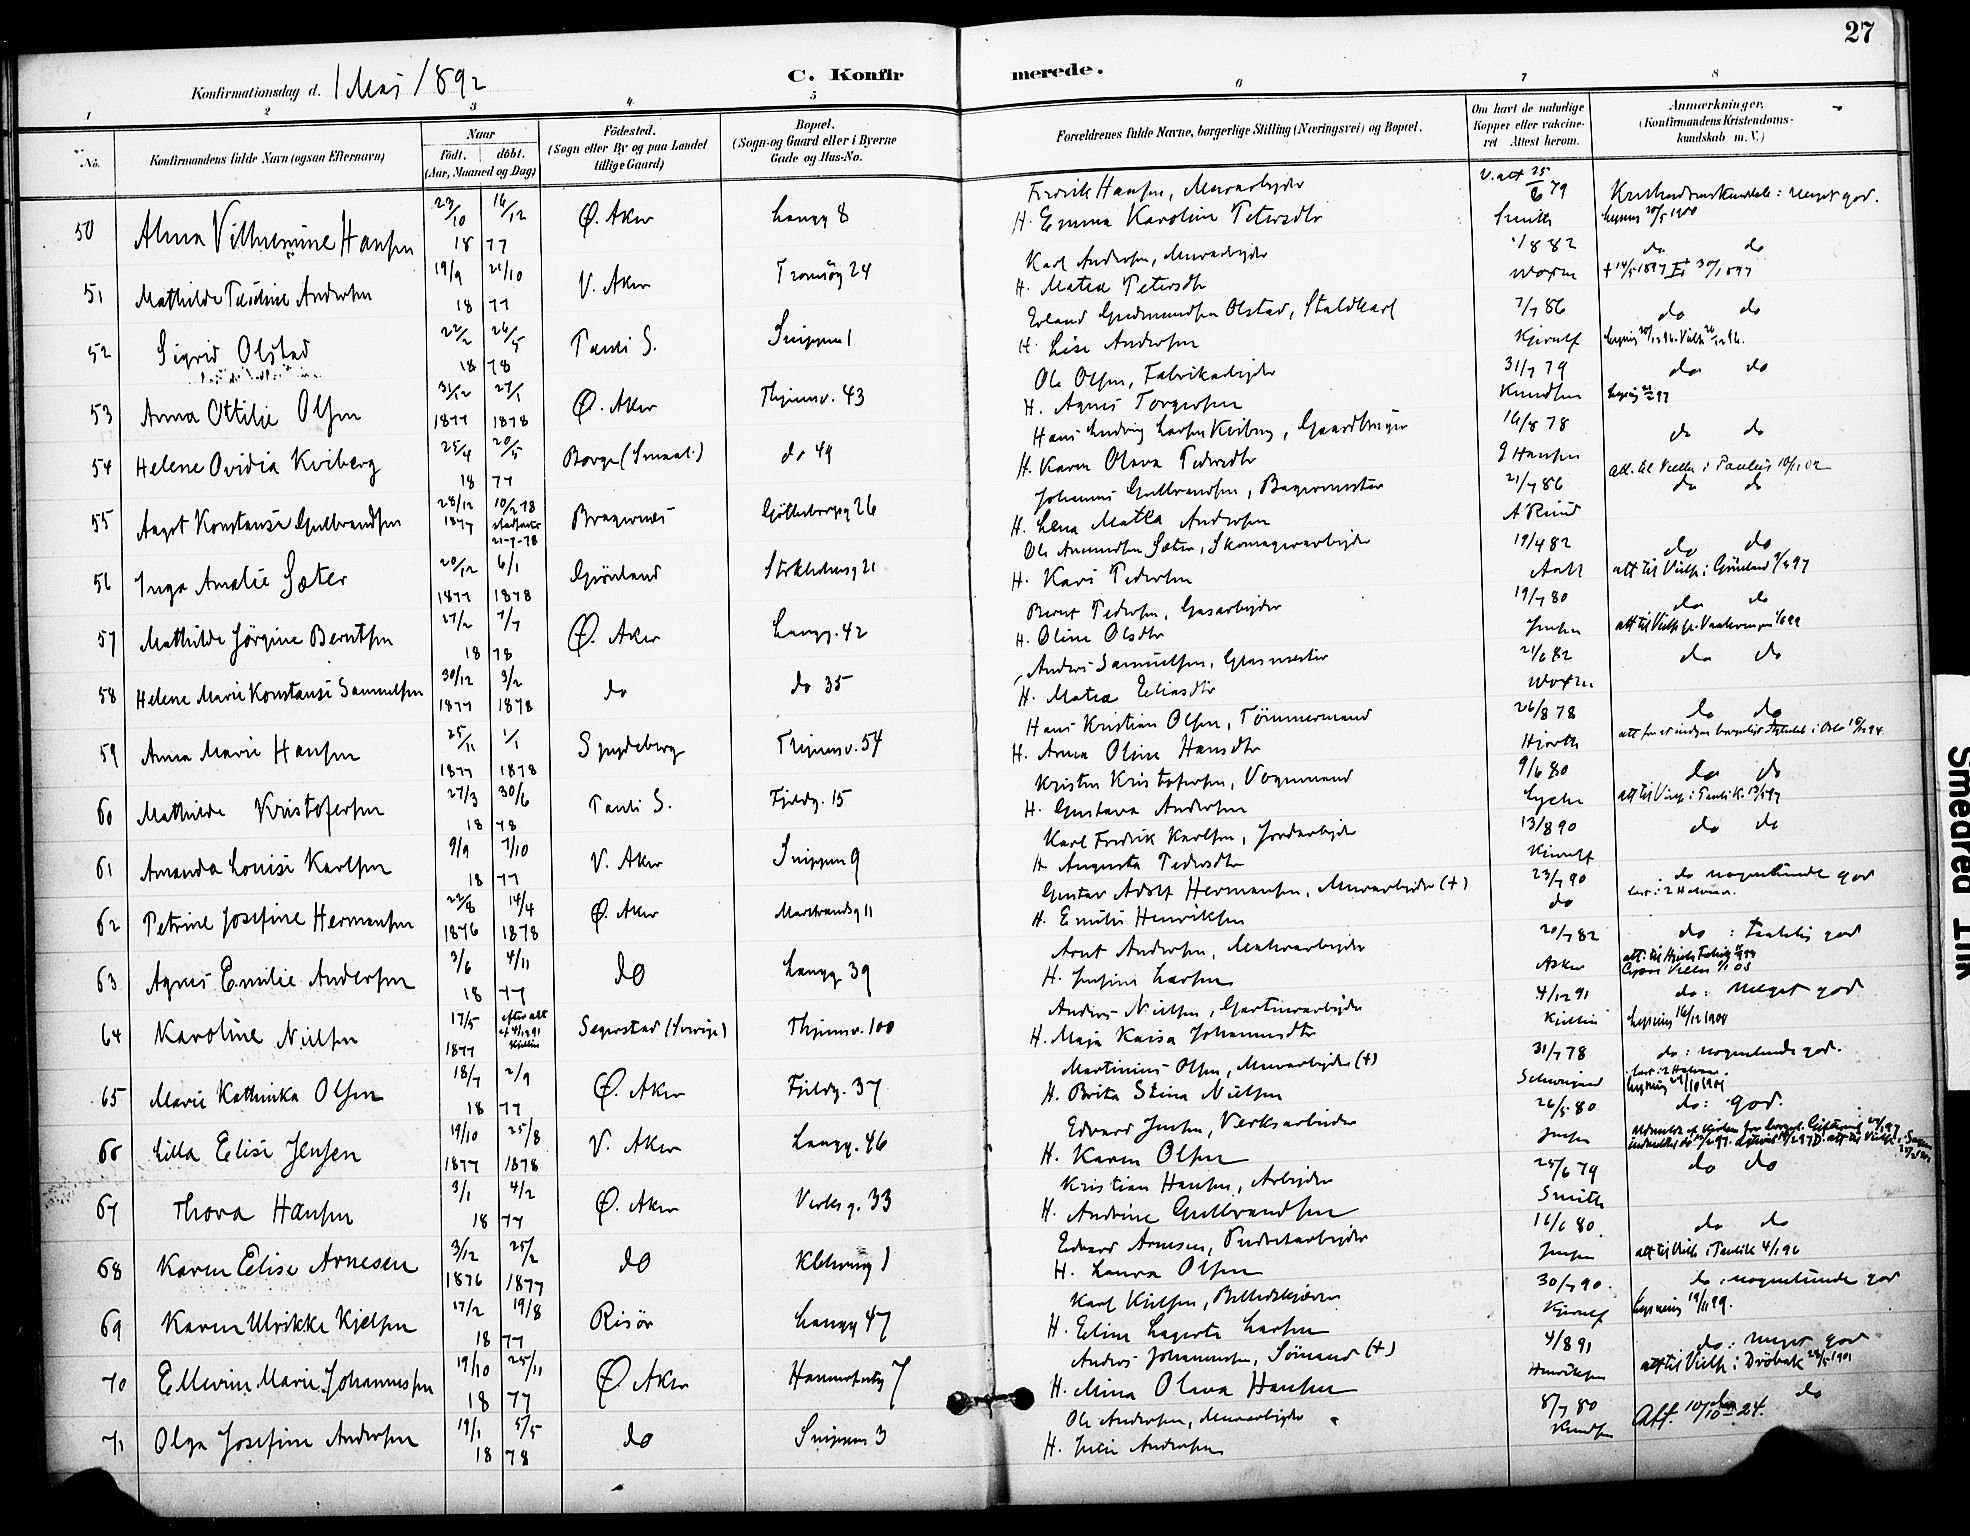 27
Konfirmationsdag d. 1 Mai 1892
C. Konfirmerede.
1 2 3 4 5 6 7 8
No.
Konfirmandens fulde Navn (ogsaa Efternavn)
Naar
födt. döbt.
(Aar, Maaned og Dag)
Födested.
(Sogn eller By og paa Landet
tillige Gaard)
Bopæl.
(Sogn og Gaard eller i Byerne
Gade og Hus-No.
Forældrenes fulde Navne, borgerlige Stilling (Næringsvei) og Bopæl.
Om havt de naturlige
Kopper eller vakcine-
ret Attest herom.
Anmærkninger.
(Konfirmandens Kristendoms-
kundskab m. V.)
50 Alma Vilhelmine Hansen 23/10 16/12 18 77 Ø. Aker Langg 8
Fredrik Hansen, Murarbejder
H. Emma Karoline Petersdtr
V. att 25/6 79 Smith
Kristendomskundskab: meget god.
51 Mathilde Pauline Andersen 19/9 21/10 18 77 V. Aker Tromsøg 24
Karl Andersen, Murarbejder
H. Matea Petersdtr
do do
52 Sigrid Olstad 22/2 26/5 18 78 Pauli S. Snippen 1
Erland Gudmundsen Olstad, Staldkarl
H. Lise Andersen
7/7 86 Kjerulf
do do
53 Anna Ottilie Olsen 31/12 27/1 1877 1878 Ø. Aker Thjemsv. 43
Ole Olsen, Fabrikarbejder
H. Agnes Torgersen
31/7 79 Knudsen
do do
54 Helene Ovidia Kviberg 25/4 20/5 18 77 Borge (Smaal.) do 49
Hans Ludvig Larsen Kviberg, Gaardbruger
H. Karen Olava Pedersdtr
16/8 78 G Hansen
do do
55 Aagot Konstanse Gulbrandsen 28/12 1877 10/2 78 stadfæstet 21-7-78 Bragernes Gøtteborgg 26
Johannes Gulbrandsen, Bagermester
H. Lena Matea Andersen
21/7 86
do do
56 Inga Amalie Sæter 20/12 6/1 1877 1878 Grønland Stokholmsg 21
Ole Amundsen Sæter, Skomagerarbejder
H. Kari Pedersen
19/4 82
do do
att til Vielse i Grønland
57 Mathilde Jörgine Berntsen 27/2 7/7 18 78 Ø. Aker Langg. 42
Bernt Pedersen, Gasarbejder
H. Oline Olsdtr
19/7 80 Jensen
do do
58 Helene Marie Konstanse Samuelsen 30/12 3/2 1877 1878 do do 35
Anders Samuelsen, Glasmester
H. Matea Eliasdtr
21/6 82
do do
59 Anna Marie Hansen 25/11 1/1 1877 1878 Spydeberg Thjemsv. 54
Hans Kristian Olsen, Tömmermand
H. Anna Oline Hansdtr
26/8 78 Hjorth
do do
60 Mathilde Kristofersen 27/3 30/6 18 78 Pauli S. Fjeldg. 15
Kristen Kristofersen, Vognmand
H. Gustava Andersen
9/6 80 Lyche
do do
61 Amanda Louise Karlsen 9/9 7/10 18 77 V. Aker Snippen 9
Karl Fredrik Karlsen, Jordarbejder
H. Augusta Pedersdtr
13/8 90 Kjerulf
do do
62 Petrine Josefine Hermansen 22/8 14/4 1876 1878 Ø. Aker Marstrandsg 11
Gustav Adolf Hermansen, Murarbejder (+)
H. Emilie Henriksen
23/7 90 do
do nogenlunde god
63 Agnes Emilie Andersen 3/6 4/11 18 77 do Langg. 39
Arnt Andersen, Malerarbejder
H. Josefine Larsen
20/7 82 Asker
do : taalelig god
64 Karoline Nilsen 17/5 1877 efter att af 4/12 91 Segerstad (Sverige) Thjemsv. 100
Anders Nilsen, Gartnerarbejder
H. Maja Kaisa Johannesdtr
4/12 91
do: meget god
65 Marie Kathinka Olsen 18/7 2/9 18 77 Ø. Aker Fjeldg. 37
Martinius Olsen, Murarbejder (+)
H. Brita Stina Nilsen
31/7 78 Schweigaard
do: nogenlunde god.
66 Lilla Elise Jensen 19/10 25/8 1877 1878 V. Aker Langg. 46
Edvard Jensen, Verksarbeider
H. Karen Olsen
26/5 80 Jensen
do: god.
67 Thora Hansen 3/1 4/2 18 77 Ø. Aker Verksg. 33
Kristian Hansen, Arbejder
H. Andrine Gulbrandsen
25/6 79 Smith
do do
68 Karen Elise Arnesen 3/12 25/2 1876 1877 do
Edvard Arnesen, Pudretarbejder
H. Laura Olsen
16/6 80 Jensen
do do
69 Karen Ulrikke Kjelsen 17/2 19/8 18 77 Risör Langg 47
Karl Kjelsen, Billedskjærer
H. Eline Lagerta Larsen
30/7 90. Kjerulf
do : nogenlunde god
70 Ellevine Marie Johannessen 19/10 25/11 18 77 Ø. Aker Hammerfestg 7
Anders Johannesen, Sömand (+)
H. Mina Olava Hansen
4/8 91 Henriksen
do: meget god
att til Vielse i Dröbak
71 Olga Josefine Andersen 19/1 5/5 18 78 do Snippen 3
Ole Andersen, Murarbejder
H. Julie Andersen
8/7 80 Knudsen
do do
Att. 10/10-24.
Smeared Ink